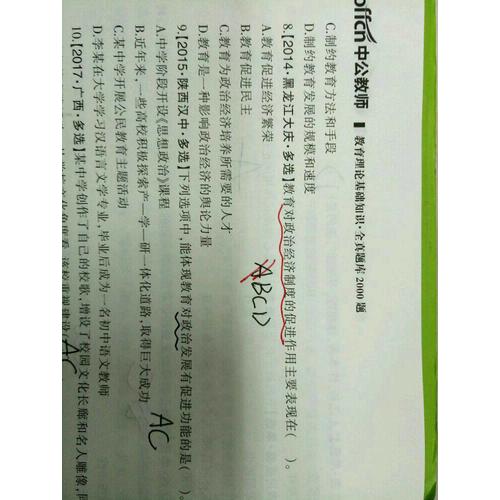 offcn中公教师 教育理论基础知识·全真题库2000题
C.制约教育方法和手段
D.制约教育发展的规模和速度
8.【2014·黑龙江大庆·多选】教育对政治经济制度的促进作用主要表现在( )。
A.教育促进经济繁荣
B.教育促进民主
ABCD
C.教育为政治经济培养所需要的人才
D.教育是一种影响政治经济的舆论力量
9.【2015·陕西汉中·多选】下列选项中,能体现教育对政治发展有促进功能的是( )。
A.中学阶段开设《思想政治》课程
AC
B.近年来,一些高校积极探索产—学—研一体化道路,取得巨大成功
C.某中学开展公民教育主题活动
D.李某在大学学习汉语言文学专业,毕业后成为一名初中语文教师
10.【2017·广西·多选】某中学创作了自己的校歌,增设了校园文化长廊和名人雕像,
AC